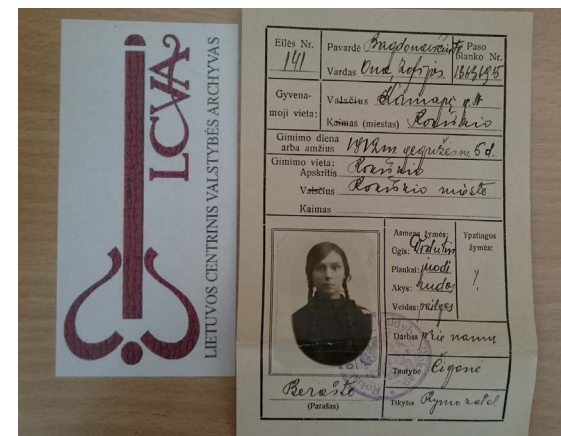 LCVA
LIETUVOS CENTRINIS VALSTYBĖS ARCHYVAS
Eilės Nr.
141
Pavardė Bagdonavičiutė
Vardas Ona, Zofijos.
Paso
blanko Nr.
Gyvena-
moji vieta:
Valsčius
Kaimas (miestas) Rokiškio
Gimimo diena
arba amžius 1912 m. gegužės m. 5 d.
Gimimo vieta:
Apskritis Rokiškio
Valsčius Rokiškio miesto
Kaimas
Asmens žymės:
Ūgis: Vidutin
Plaukai: juodi
Akys: rudos
Veidas: pailgas
Ypatingos
žymės:
Darbas prie namų
Tautybė Čigonė
Tikyba Rymo katal
Beraštė
(Parašas)